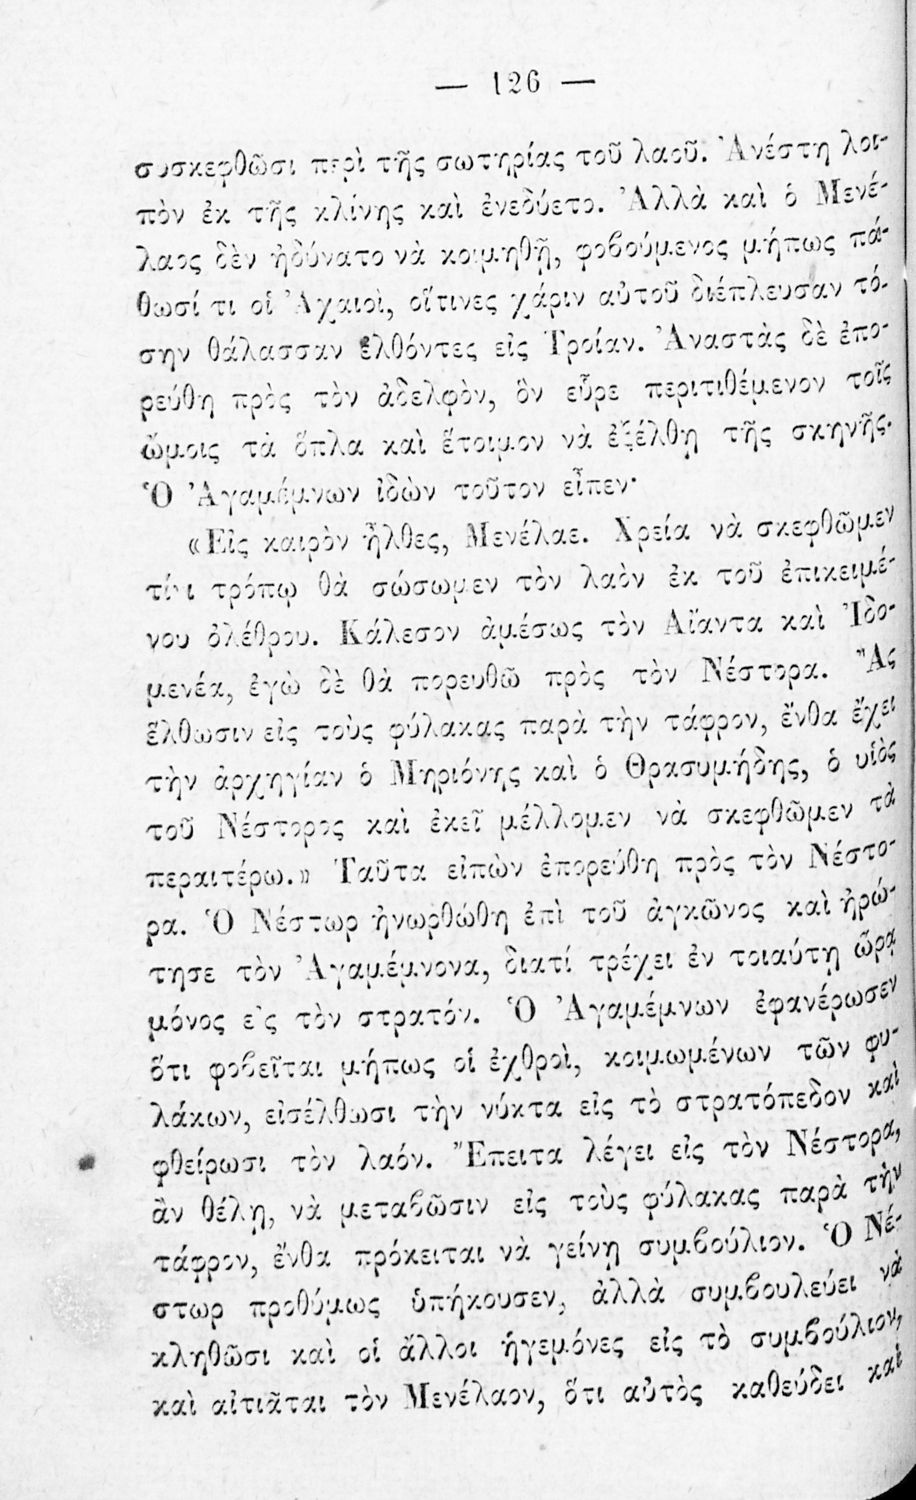 — 126 —
συσκεφθῶσι περὶ τῆς σωτηρίας τοῦ λαοῦ. Ἀνέστη λοι-
πὸν ἐκ τῆς κλίνης καὶ ἐνεδύετο. Ἀλλὰ καὶ ὁ Μενέ-
λαος δὲν ἠδύνατο νὰ κοιμηθῇ, φοβούμενος μήπως πά-
θωσί τι οἱ Ἀχαιοὶ, οἵτινες χάριν αὐτοῦ διέπλευσαν τό-
σην θάλασσαν ἐλθόντες εἰς Τροίαν. Ἀναστὰς δὲ ἐπο-
ρεύθη πρὸς τὸν ἀδελφὸν, ὃν εὗρε περιτιθέμενον τοῖς
ὤμοις τὰ ὅπλα καὶ ἕτοιμον νὰ ἐξέλθῃ τῆς σκηνῆς.
Ὁ Ἀγαμέμνων ἰδὼν τοῦτον εἶπεν·
«Εἰς καιρὸν ἦλθες, Μενέλαε. Χρεία νὰ σκεφθῶμεν
τίνι τρόπῳ θὰ σώσωμεν τὸν λαὸν ἐκ τοῦ ἐπικειμέ-
νου ὀλέθρου. Κάλεσον ἀμέσως τὸν Αἴαντα καὶ Ἰδο-
μενέα, ἐγὼ δὲ θὰ πορευθῶ πρὸς τὸν Νέστορα. Ἂς
ἔλθωσιν εἰς τοὺς φύλακας παρὰ τὴν τάφρον, ἔνθα ἔχει
τὴν ἀρχηγίαν ὁ Μηριόνης καὶ ὁ Θρασυμήδης, ὁ υἱὸς
τοῦ Νέστορος καὶ ἐκεῖ μέλλομεν νὰ σκεφθῶμεν τὰ
περαιτέρω.» Ταῦτα εἰπὼν ἐπορεύθη πρὸς τὸν Νέστο-
ρα. Ὁ Νέστωρ ἠνωρθώθη ἐπὶ τοῦ ἀγκῶνος καὶ ἠρώ-
τησε τὸν Ἀγαμέμνονα, διατί τρέχει ἐν τοιαύτῃ ὥρᾳ
μόνος εἰς τὸν στρατόν. Ὁ Ἀγαμέμνων ἐφανέρωσεν
ὅτι φοβεῖται μήπως οἱ ἐχθροὶ, κοιμωμένων τῶν φυ-
λάκων, εἰσέλθωσι τὴν νύκτα εἰς τὸ στρατόπεδον καὶ
φθείρωσι τὸν λαόν. Ἔπειτα λέγει εἰς τὸν Νέστορα,
ἂν θέλῃ, νὰ μεταβῶσιν εἰς τοὺς φύλακας παρὰ τὴν
τάφρον, ἔνθα πρόκειται νὰ γείνῃ συμβούλιον. Ὁ Νέ-
στωρ προθύμως ὑπήκουσεν, ἀλλὰ συμβουλεύει νὰ
κληθῶσι καὶ οἱ ἄλλοι ἡγεμόνες εἰς τὸ συμβούλιον,
καὶ αἰτιᾶται τὸν Μενέλαον, ὅτι αὐτὸς καθεύδει καὶ